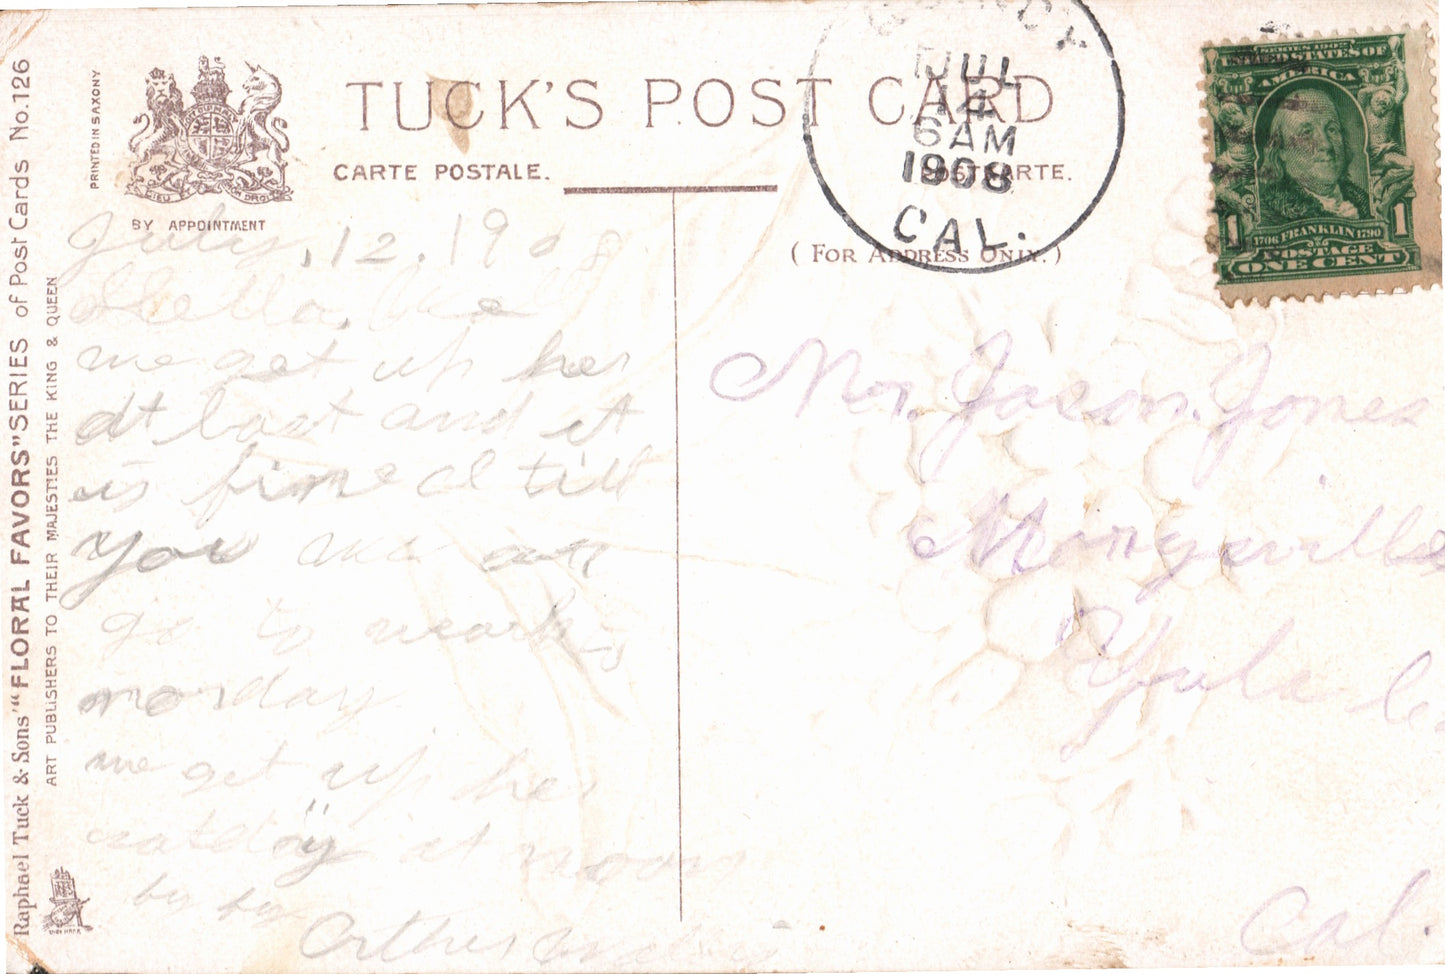 Raphael Tuck & Sons' "FLORAL FAVORS" SERIES of Post Cards No. 126
ART PUBLISHERS TO THEIR MAJESTIES THE KING & QUEEN
PRINTED IN SAXONY
DIEU DROIT
BY APPOINTMENT
TUCK'S POST CARD
CARTE POSTALE. POSTKARTE.
(FOR ADDRESS ONLY.)
JUL
14
6 AM
1908
CAL.
SERIES 1902
UNITED STATES OF
AMERICA
1 1
1706 FRANKLIN 1790
POSTAGE
ONE CENT
July, 12. 1908
Hello,
we get up her
at last and it
is fine
you
go to work
monday
we get up her
at noon
by by
Mr. Jason. Jones
Marysville
Cal.